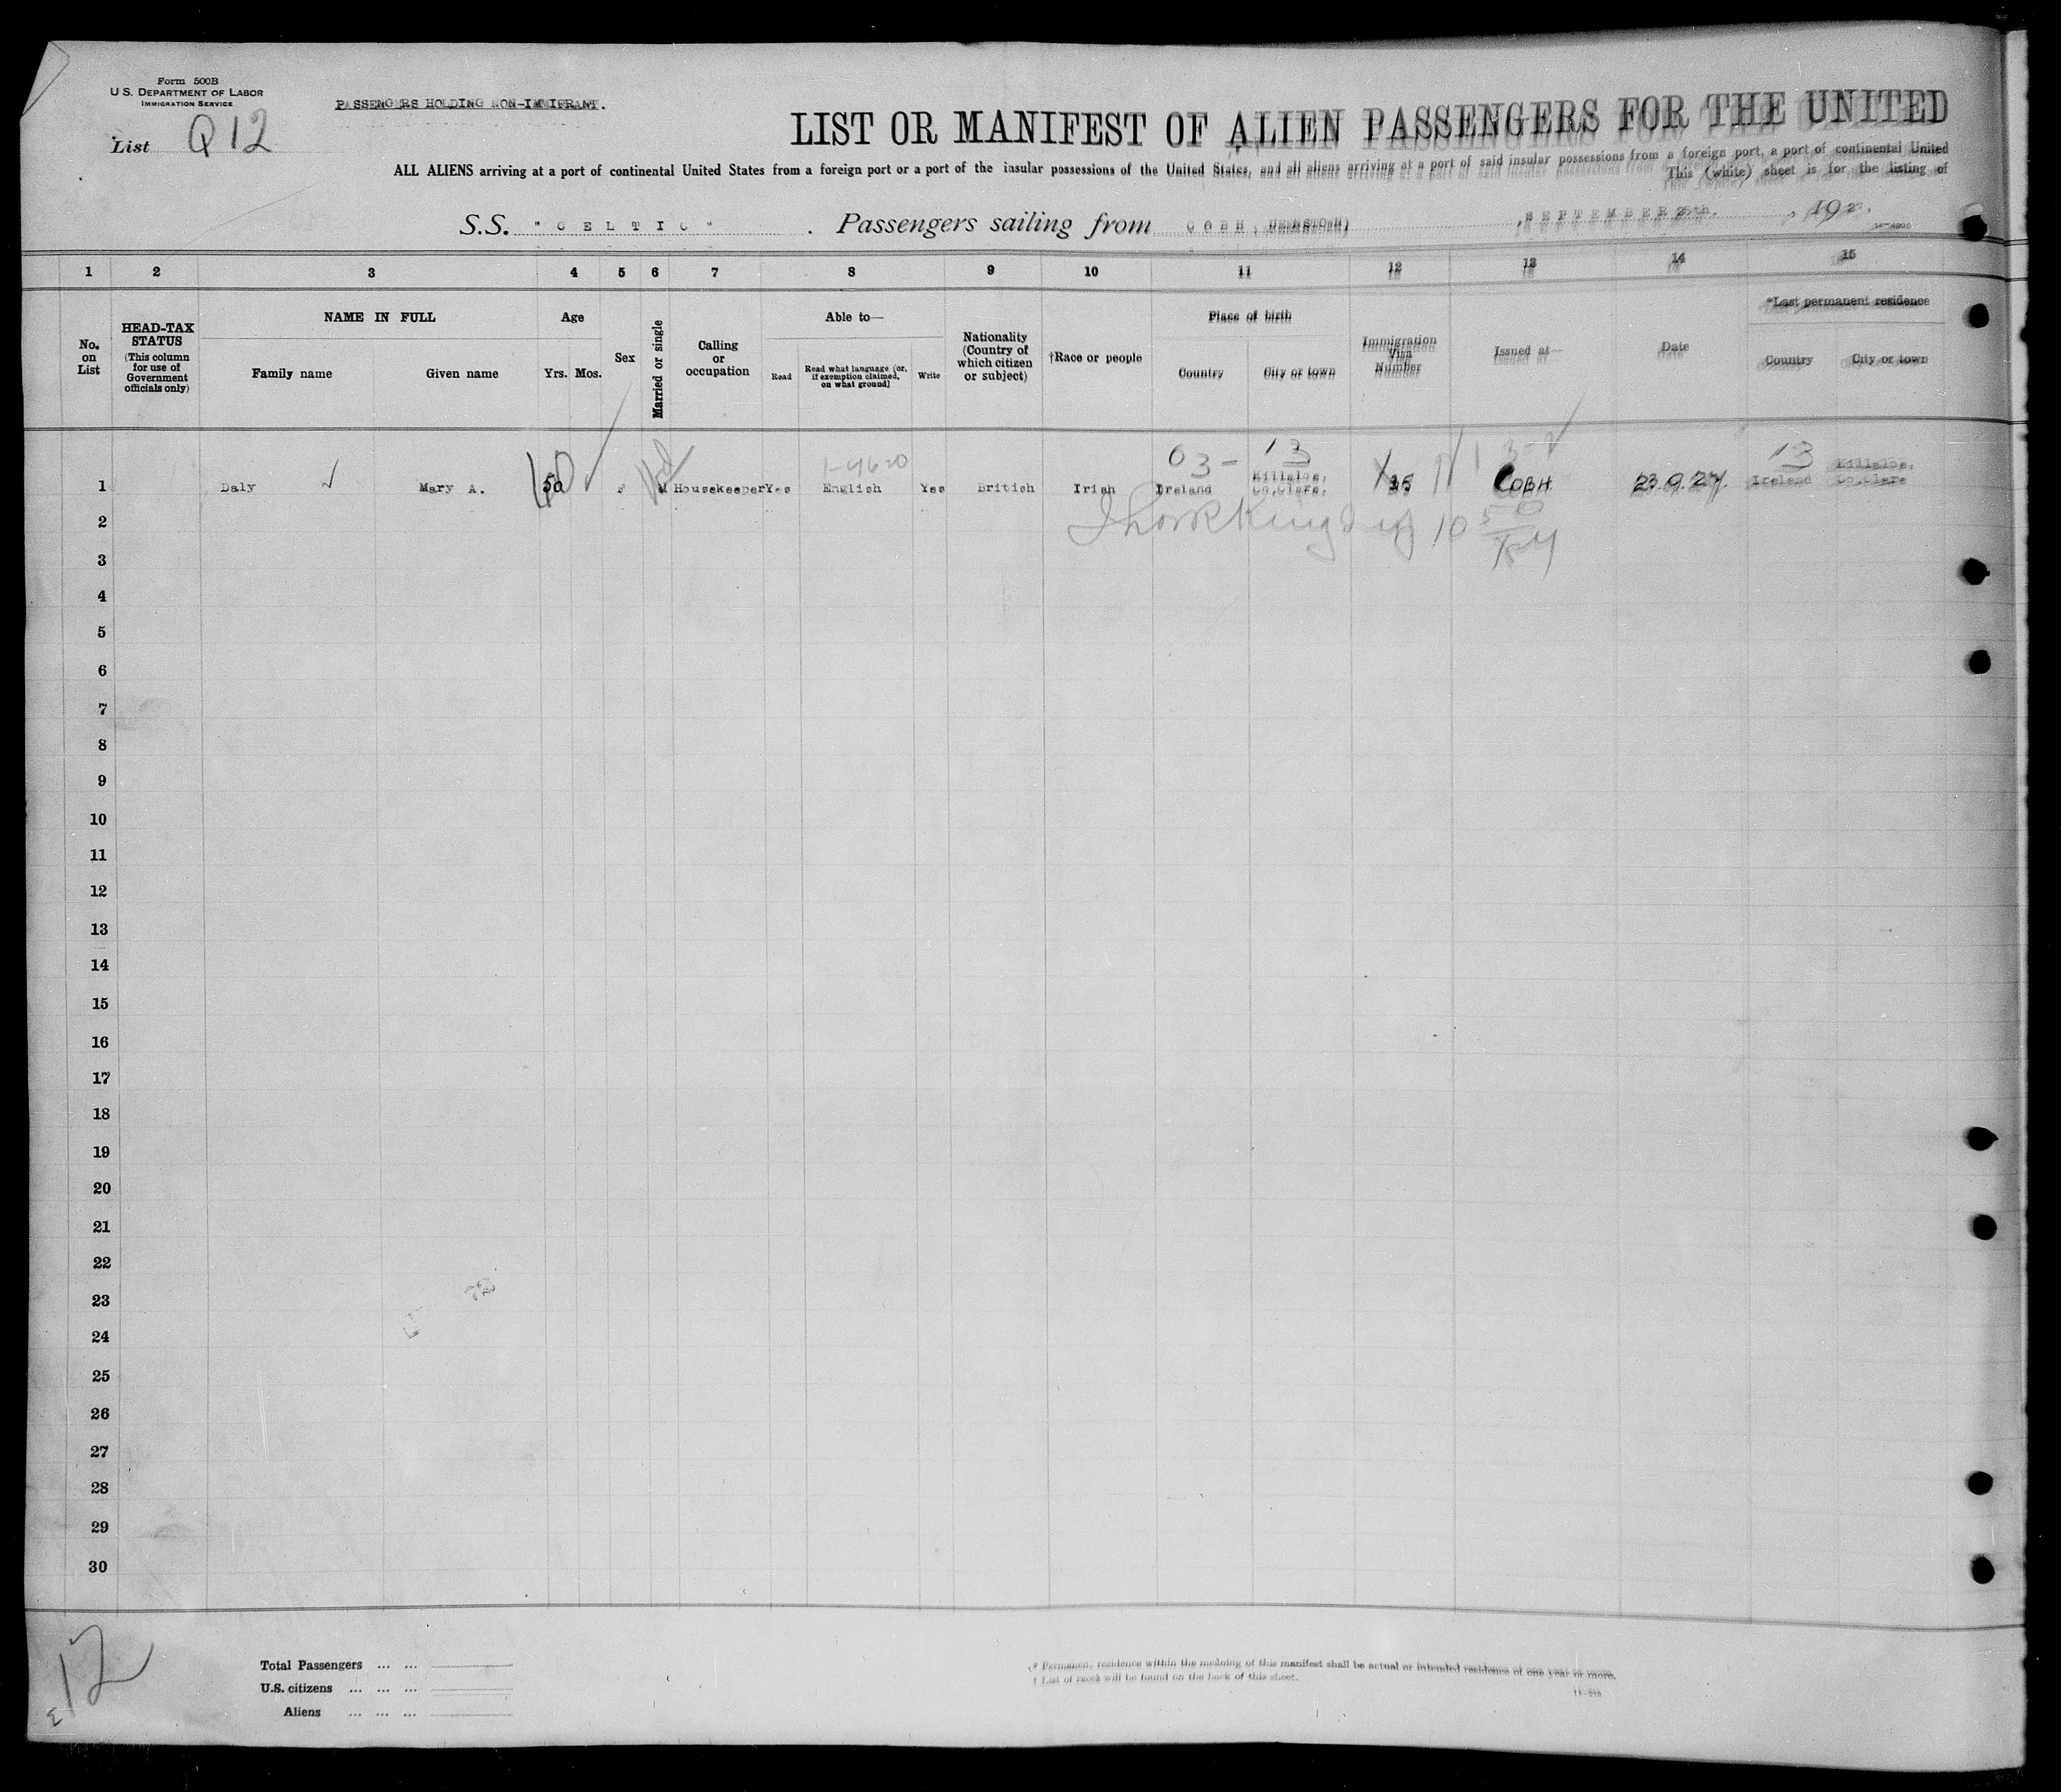 Form 500B
U.S. DEPARTMENT OF LABOR
IMMIGRATION SERVICE
PASSENGERS HOLDING NON-IMMIGRANT.
List Q12
LIST OR MANIFEST OF ALIEN PASSENGERS FOR THE UNITED
ALL ALIENS arriving at a port of continental United States from a foreign port or a port of the insular possessions of the United States, and all aliens arriving at a port of said insular possessions from a foreign port, a port of continental United
This (white) sheet is for the listing of
S.S. "CELTIC". Passengers sailing from COBH, SEPTEMBER 25th., 1927.
1 2 3 4 5 6 7 8 9 10 11 12 13 14 15
No. on List
HEAD-TAX STATUS
(This column for use of Government officials only)
NAME IN FULL
Family name
Given name
Age
Yrs. Mos.
Sex
Married or single
Calling or occupation
Able to—
Read
Read what language (or, if exemption claimed, on what ground)
Write
Nationality (Country of which citizen or subject)
†Race or people
Place of birth
Country
City or town
Immigration Visa Number
Issued at—
Date
*Last permanent residence
Country
City or town
03- 13 13
1 Daly Mary A. 50 F M Housekeeper Yes English Yes British Irish Ireland Killaloe, Co.Clare. COBH 23.9.27. Ireland Killaloe, Co.Clare
2
3
4
5
6
7
8
9
10
11
12
13
14
15
16
17
18
19
20
21
22
23
24
25
26
27
28
29
30
12
Total Passengers ... ...
U.S. citizens ... ... ...
Aliens ... ... ...
* Permanent residence within the meaning of this manifest shall be actual or intended residence of one year or more.
† List of races will be found on the back of this sheet.